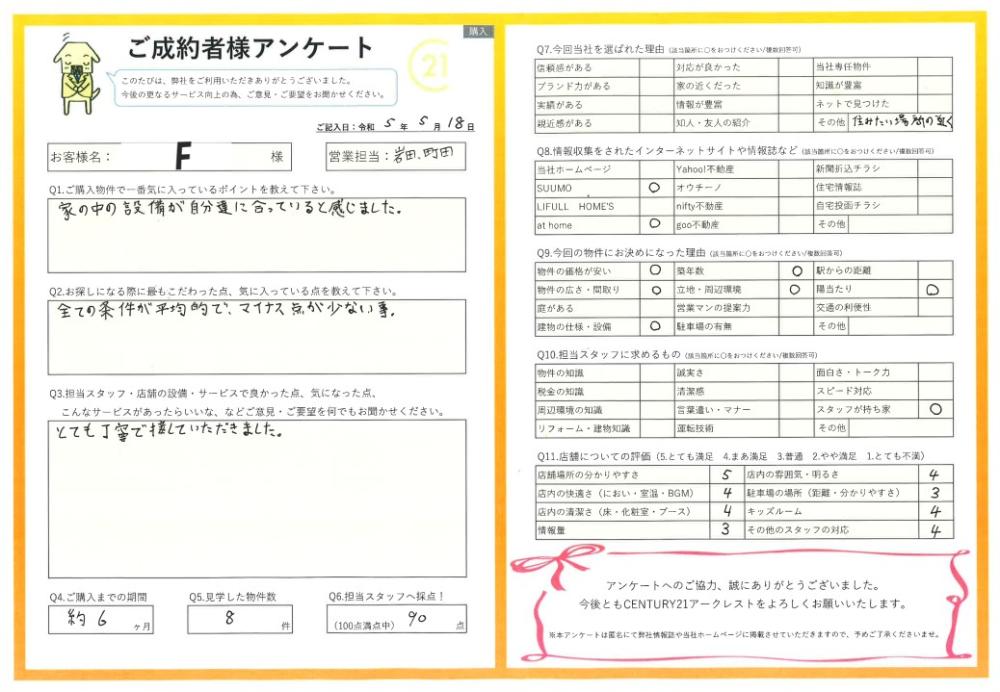 購入
ご成約者様アンケート
21
このたびは、弊社をご利用いただきありがとうございました。
今後の更なるサービス向上の為、ご意見・ご要望をお聞かせください。
ご記入日:令和 5 年 5 月 18 日
お客様名: F 様
営業担当:岩田、町田
Q1.ご購入物件で一番気に入っているポイントを教えて下さい。
家の中の設備が自分達に合っていると感じました。
Q2.お探しになる際に最もこだわった点、気に入っている点を教えて下さい。
全ての条件が平均的で、マイナス点が少ない事。
Q3.担当スタッフ・店舗の設備・サービスで良かった点、気になった点、
こんなサービスがあったらいいな、などご意見・ご要望を何でもお聞かせください。
とても丁寧で接していただきました。
Q4.ご購入までの期間
約6 ヶ月
Q5.見学した物件数
8 件
Q6.担当スタッフへ採点!
(100点満点中) 90 点
Q7.今回当社を選ばれた理由(該当箇所に○をおつけください/複数回答可)
信頼感がある 対応が良かった 当社専任物件
ブランド力がある 家の近くだった 知識が豊富
実績がある 情報が豊富 ネットで見つけた
親近感がある 知人・友人の紹介 その他 住みたい場所の近く
Q8.情報収集をされたインターネットサイトや情報誌など(該当箇所に○をおつけください/複数回答可)
当社ホームページ Yahoo!不動産 新聞折込チラシ
SUUMO ○ オウチーノ 住宅情報誌
LIFULL HOME'S nifty不動産 自宅投函チラシ
at home ○ goo不動産 その他
Q9.今回の物件にお決めになった理由(該当箇所に○をおつけください/複数回答可)
物件の価格が安い ○ 築年数 ○ 駅からの距離
物件の広さ・間取り ○ 立地・周辺環境 ○ 陽当たり ○
庭がある 営業マンの提案力 交通の利便性
建物の仕様・設備 ○ 駐車場の有無 その他
Q10.担当スタッフに求めるもの(該当箇所に○をおつけください/複数回答可)
物件の知識 誠実さ 面白さ・トーク力
税金の知識 清潔感 スピード対応
周辺環境の知識 言葉遣い・マナー スタッフが持ち家 ○
リフォーム・建物知識 運転技術 その他
Q11.店舗についての評価(5.とても満足 4.まあ満足 3.普通 2.やや満足 1.とても不満)
店舗場所の分かりやすさ 5 店内の雰囲気・明るさ 4
店内の快適さ(におい・室温・BGM) 4 駐車場の場所(距離・分かりやすさ) 3
店内の清潔さ(床・化粧室・ブース) 4 キッズルーム 4
情報量 3 その他のスタッフの対応 4
アンケートへのご協力、誠にありがとうございました。
今後ともCENTURY21アークレストをよろしくお願いいたします。
※本アンケートは匿名にて弊社情報誌や当社ホームページに掲載させていただきますので、予めご了承くださいませ。